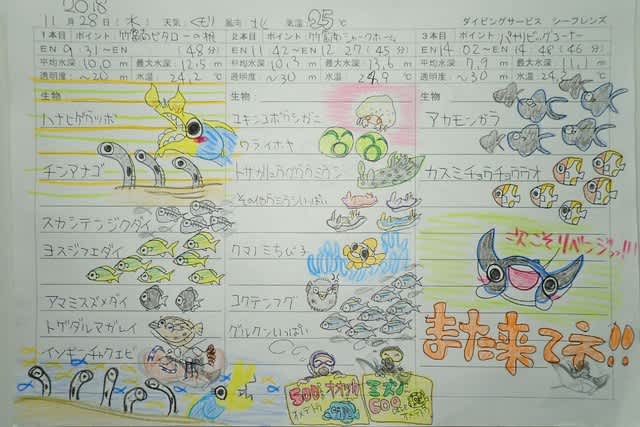 2018
11月28日(水) 天気:くもり 風向:北 気温:25℃ ダイビングサービス シーフレンズ
1本目 ポイント:竹富南ビタローの根
EN 9:31〜EX (48分)
平均水深 10.0m 最大水深 12.5m
透明度 〜20m 水温 24.2℃
生物
ハナヒゲウツボ
チンアナゴ
スカシテンジクダイ
ヨスジフエダイ
アマミスズメダイ
トゲダルマガレイ
イソギンチャクエビ
2本目 ポイント:竹富南シャークホール
EN 11:42〜EX 12:27 (45分)
平均水深 10.3m 最大水深 13.6m
透明度 〜30m 水温 24.9℃
生物:
ユキンコボウシガニ
ウライホヤ
トサカリュウグウウミウシ
(その他ウミウシいっぱい
クマノミちび子
コクテンフグ
グルクンいっぱい
500本
オメデトウ
600
3本目 ポイント:パナリビッグコーナー
EN 14:02〜EX 14:48 (46分)
平均水深 7.9m 最大水深 11.1m
透明度 〜30m 水温
生物:
アカモンガラ
カスミチョウチョウウオ
次こそリベンジっ!!!
また来てネ!!